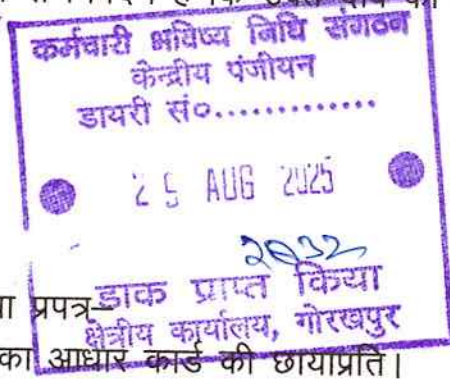 कर्मचारी भविष्य निधि संगठन
केन्द्रीय पंजीयन
डायरी सं०.............
AUG 2025
प्रपत्र–
डाक प्राप्त किया
क्षेत्रीय कार्यालय, गोरखपुर
का आधार कार्ड की छायाप्रति।